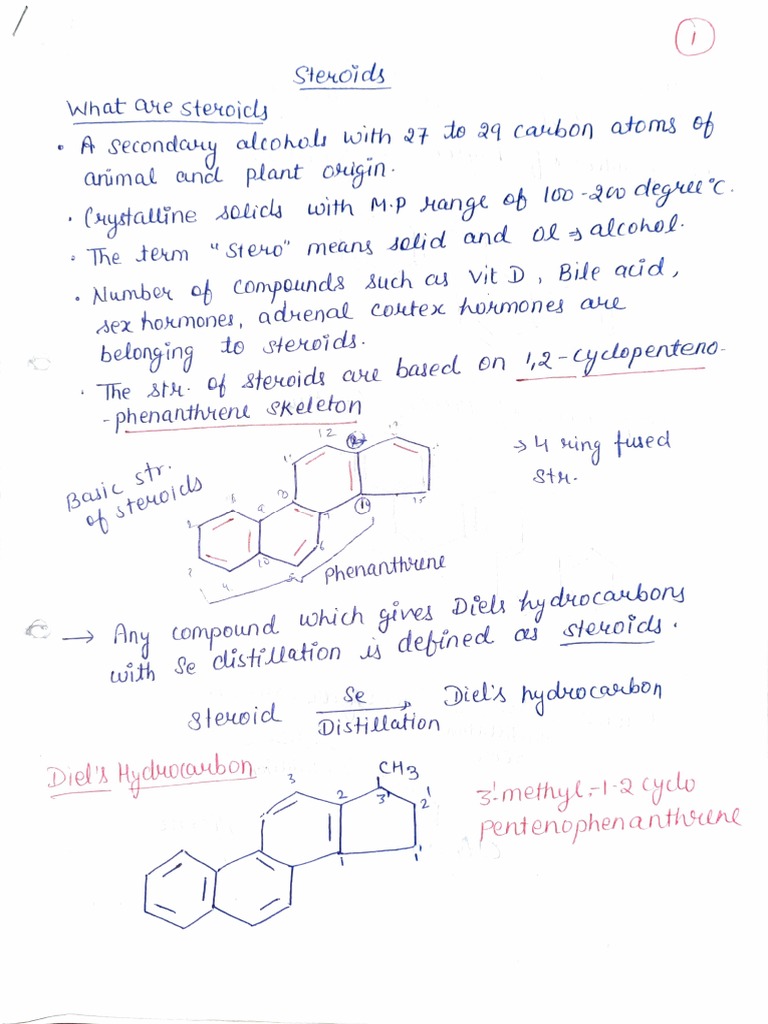 1
Steroids
What are steroids
• A secondary alcohols with 27 to 29 carbon atoms of
animal and plant origin.
• Crystalline solids with M.P range of 100-200 degree °C.
• The term "stero" means solid and ol → alcohol.
• Number of compounds such as Vit D, Bile acid,
sex hormones, adrenal cortex hormones are
belonging to steroids.
• The str. of steroids are based on 1,2-cyclopenteno-
-phenanthrene skeleton
Basic str.
of steroids
12
9
10
6
15
→ 4 ring fused
str.
Phenanthrene
→ Any compound which gives Diels hydrocarbons
with Se distillation is defined as steroids.
Steroid Se Distillation → Diel's hydrocarbon
Diel's Hydrocarbon
CH3
3 2 3' 2'
1 1'
3'-methyl-1-2 cyclo
pentenophenanthrene